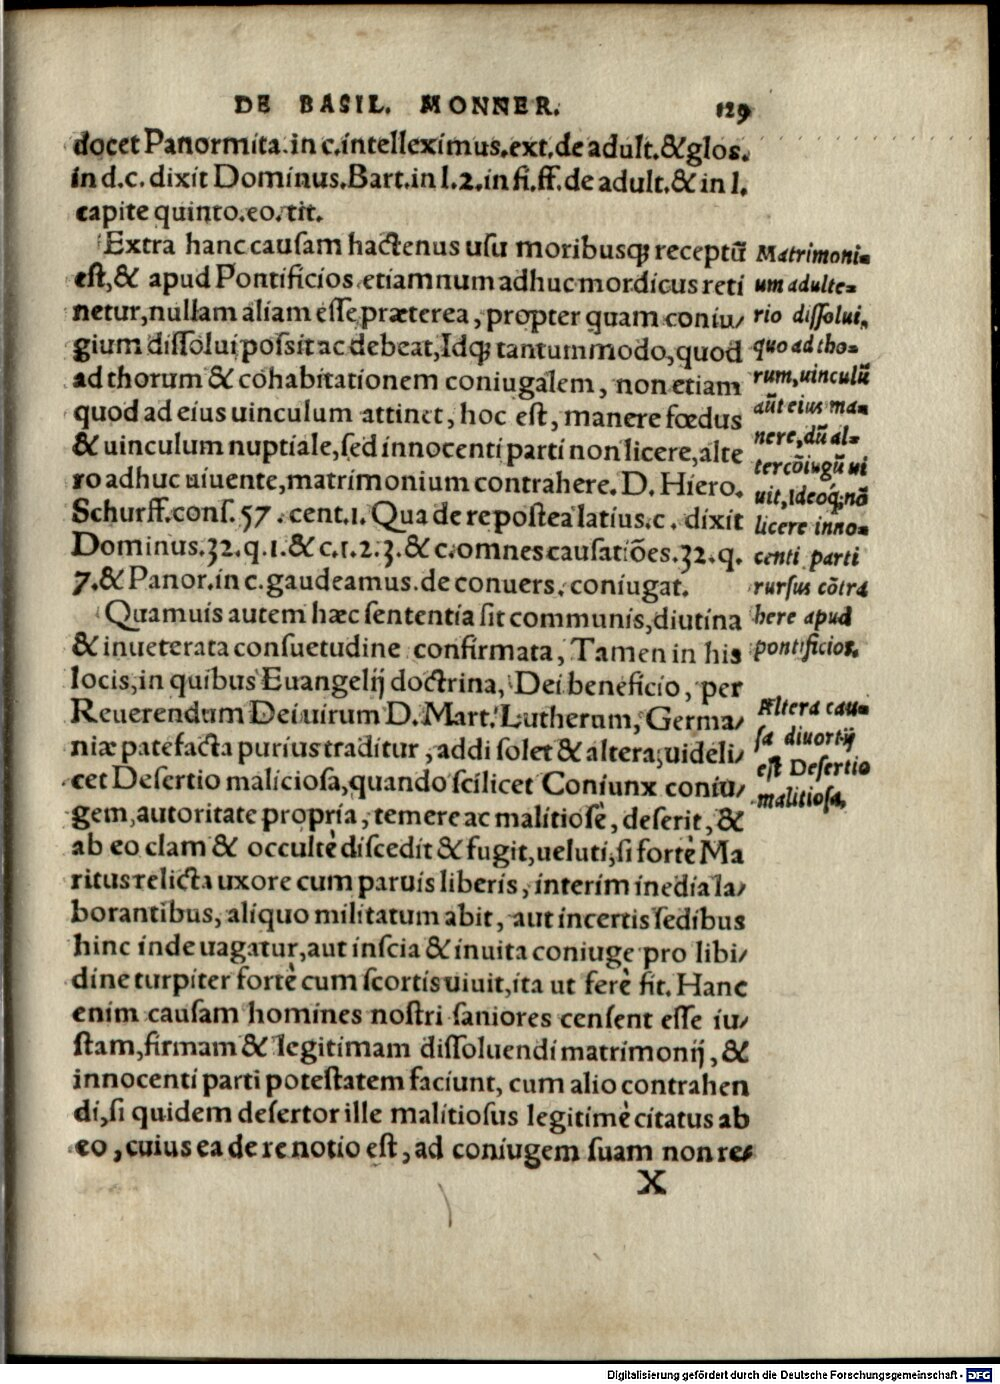 DE BASIL. MONNER. 129
docet Panormita.in c.intelleximus.ext.de adult.&glos.
in d.c. dixit Dominus.Bart.in l.2.in fi.ff.de adult.& in l.
capite quinto.eo.tit.
Extra hanc causam hactenus usu moribusq; receptū
est,& apud Pontificios etiamnum adhuc mordicus reti
netur,nullam aliam esse præterea, propter quam coniu/
gium dissolui possit ac debeat,Idq; tantummodo,quod
ad thorum & cohabitationem coniugalem, non etiam
quod ad eius uinculum attinet, hoc est, manere fœdus
& uinculum nuptiale,sed innocenti parti non licere,alte
ro adhuc uiuente,matrimonium contrahere. D. Hiero.
Schurff.cons.57.cent.1. Qua de re postea latius.c. dixit
Dominus.32.q.1.& c.1.2.3.& c.omnes causatiões.32.q.
7.& Panor.in c.gaudeamus.de conuers. coniugat.
Quamuis autem hæc sententia sit communis,diutina
& inueterata consuetudine confirmata, Tamen in his
locis,in quibus Euangelij doctrina, Dei beneficio, per
Reuerendum Dei uirum D. Mart. Lutherum, Germa/
niæ patefacta purius traditur, addi solet & altera,uideli/
cet Desertio maliciosa,quando scilicet Coniunx coniu/
gem,autoritate propria, temere ac malitiosè, deserit, &
ab eo clam & occultè discedit & fugit,ueluti,si fortè Ma
ritus relicta uxore cum paruis liberis, interim inedia la/
borantibus, aliquo militatum abit, aut incertis sedibus
hinc inde uagatur,aut inscia & inuita coniuge pro libi/
dine turpiter fortè cum scortis uiuit,ita ut ferè fit. Hanc
enim causam homines nostri saniores censent esse iu/
stam,firmam & legitimam dissoluendi matrimonij, &
innocenti parti potestatem faciunt, cum alio contrahen
di,si quidem desertor ille malitiosus legitimè citatus ab
eo, cuius ea de re notio est, ad coniugem suam non re/
X
Matrimoni=
um adulte=
rio dissolui,
quo ad tho=
rum,uinculū
aūt eius ma=
nere,dū al=
ter cōiugū ui
uit,Ideoq; nō
licere inno=
centi parti
rursus cōtra
here apud
pontificios.
Altera cau=
sa diuortij
est Desertio
malitiosa.
Digitalisierung gefördert durch die Deutsche Forschungsgemeinschaft - DFG